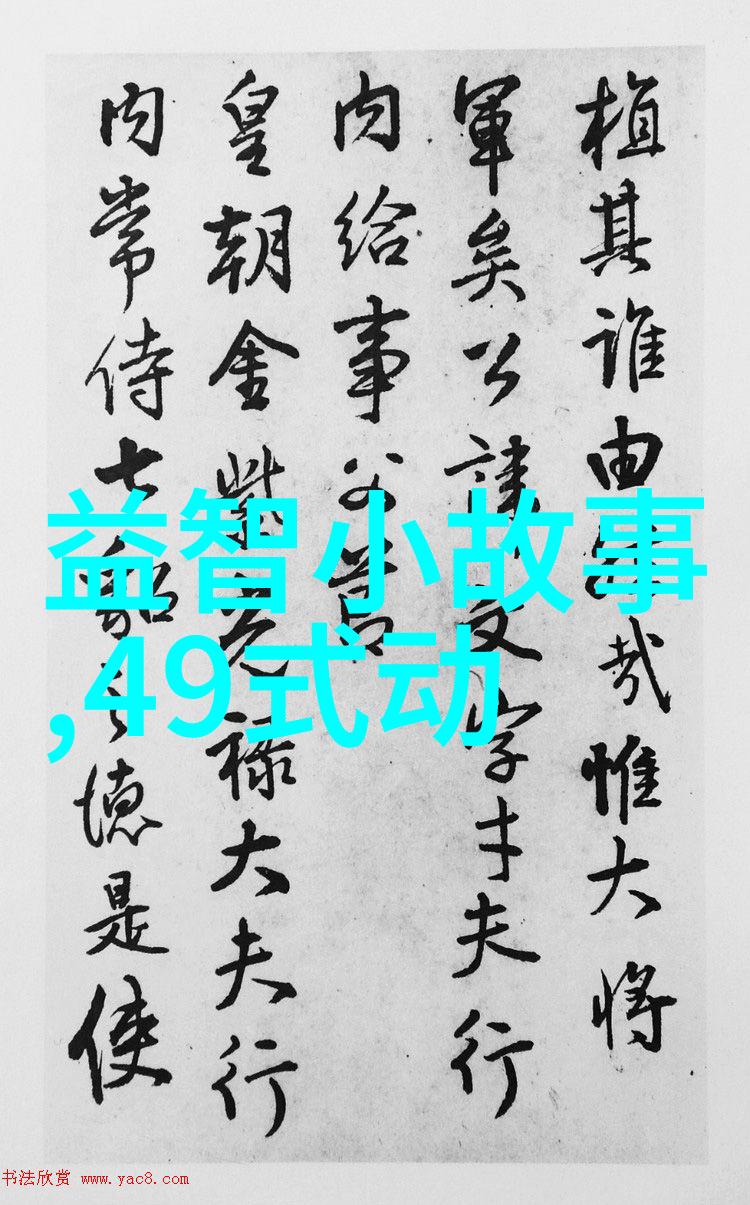 植其誰由哉惟大將
軍矣公諱文字才夫行
內給事父
皇朝金紫光祿大夫行
內常侍七貂之德是使
益智小故事
,49式动
书法欣赏 www.yac8.com